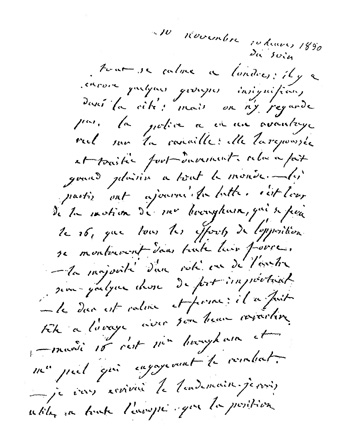 10 novembre 10 heures 1830
du soir
tout se calme a londres: il y a
encore quelques groupes insignifians
dans la cité: mais on n'y regarde
pas. la police a eu un avantage
réel sur la canaille: elle l'a repoussée
et traitée fort durement. cela a fait
grand plaisir a tout le monde. — les
partis ont ajourné la lutte. c'est lors
de la motion de mr brougham, qui se fera
le 16, que tous les efforts de l'opposition
se montreront dans toute leur force.
— la majorité d'un coté ou de l'autre
sera quelque chose de fort important
— le duc est calme et ferme: il a fait
tête a l'orage avec son beau caractère
— mardi 16 c'est mr brougham et
mr peel qui engageront le combat.
— je vous ecrirai le lendemain. je crois
utile, a toute l'europe que la position